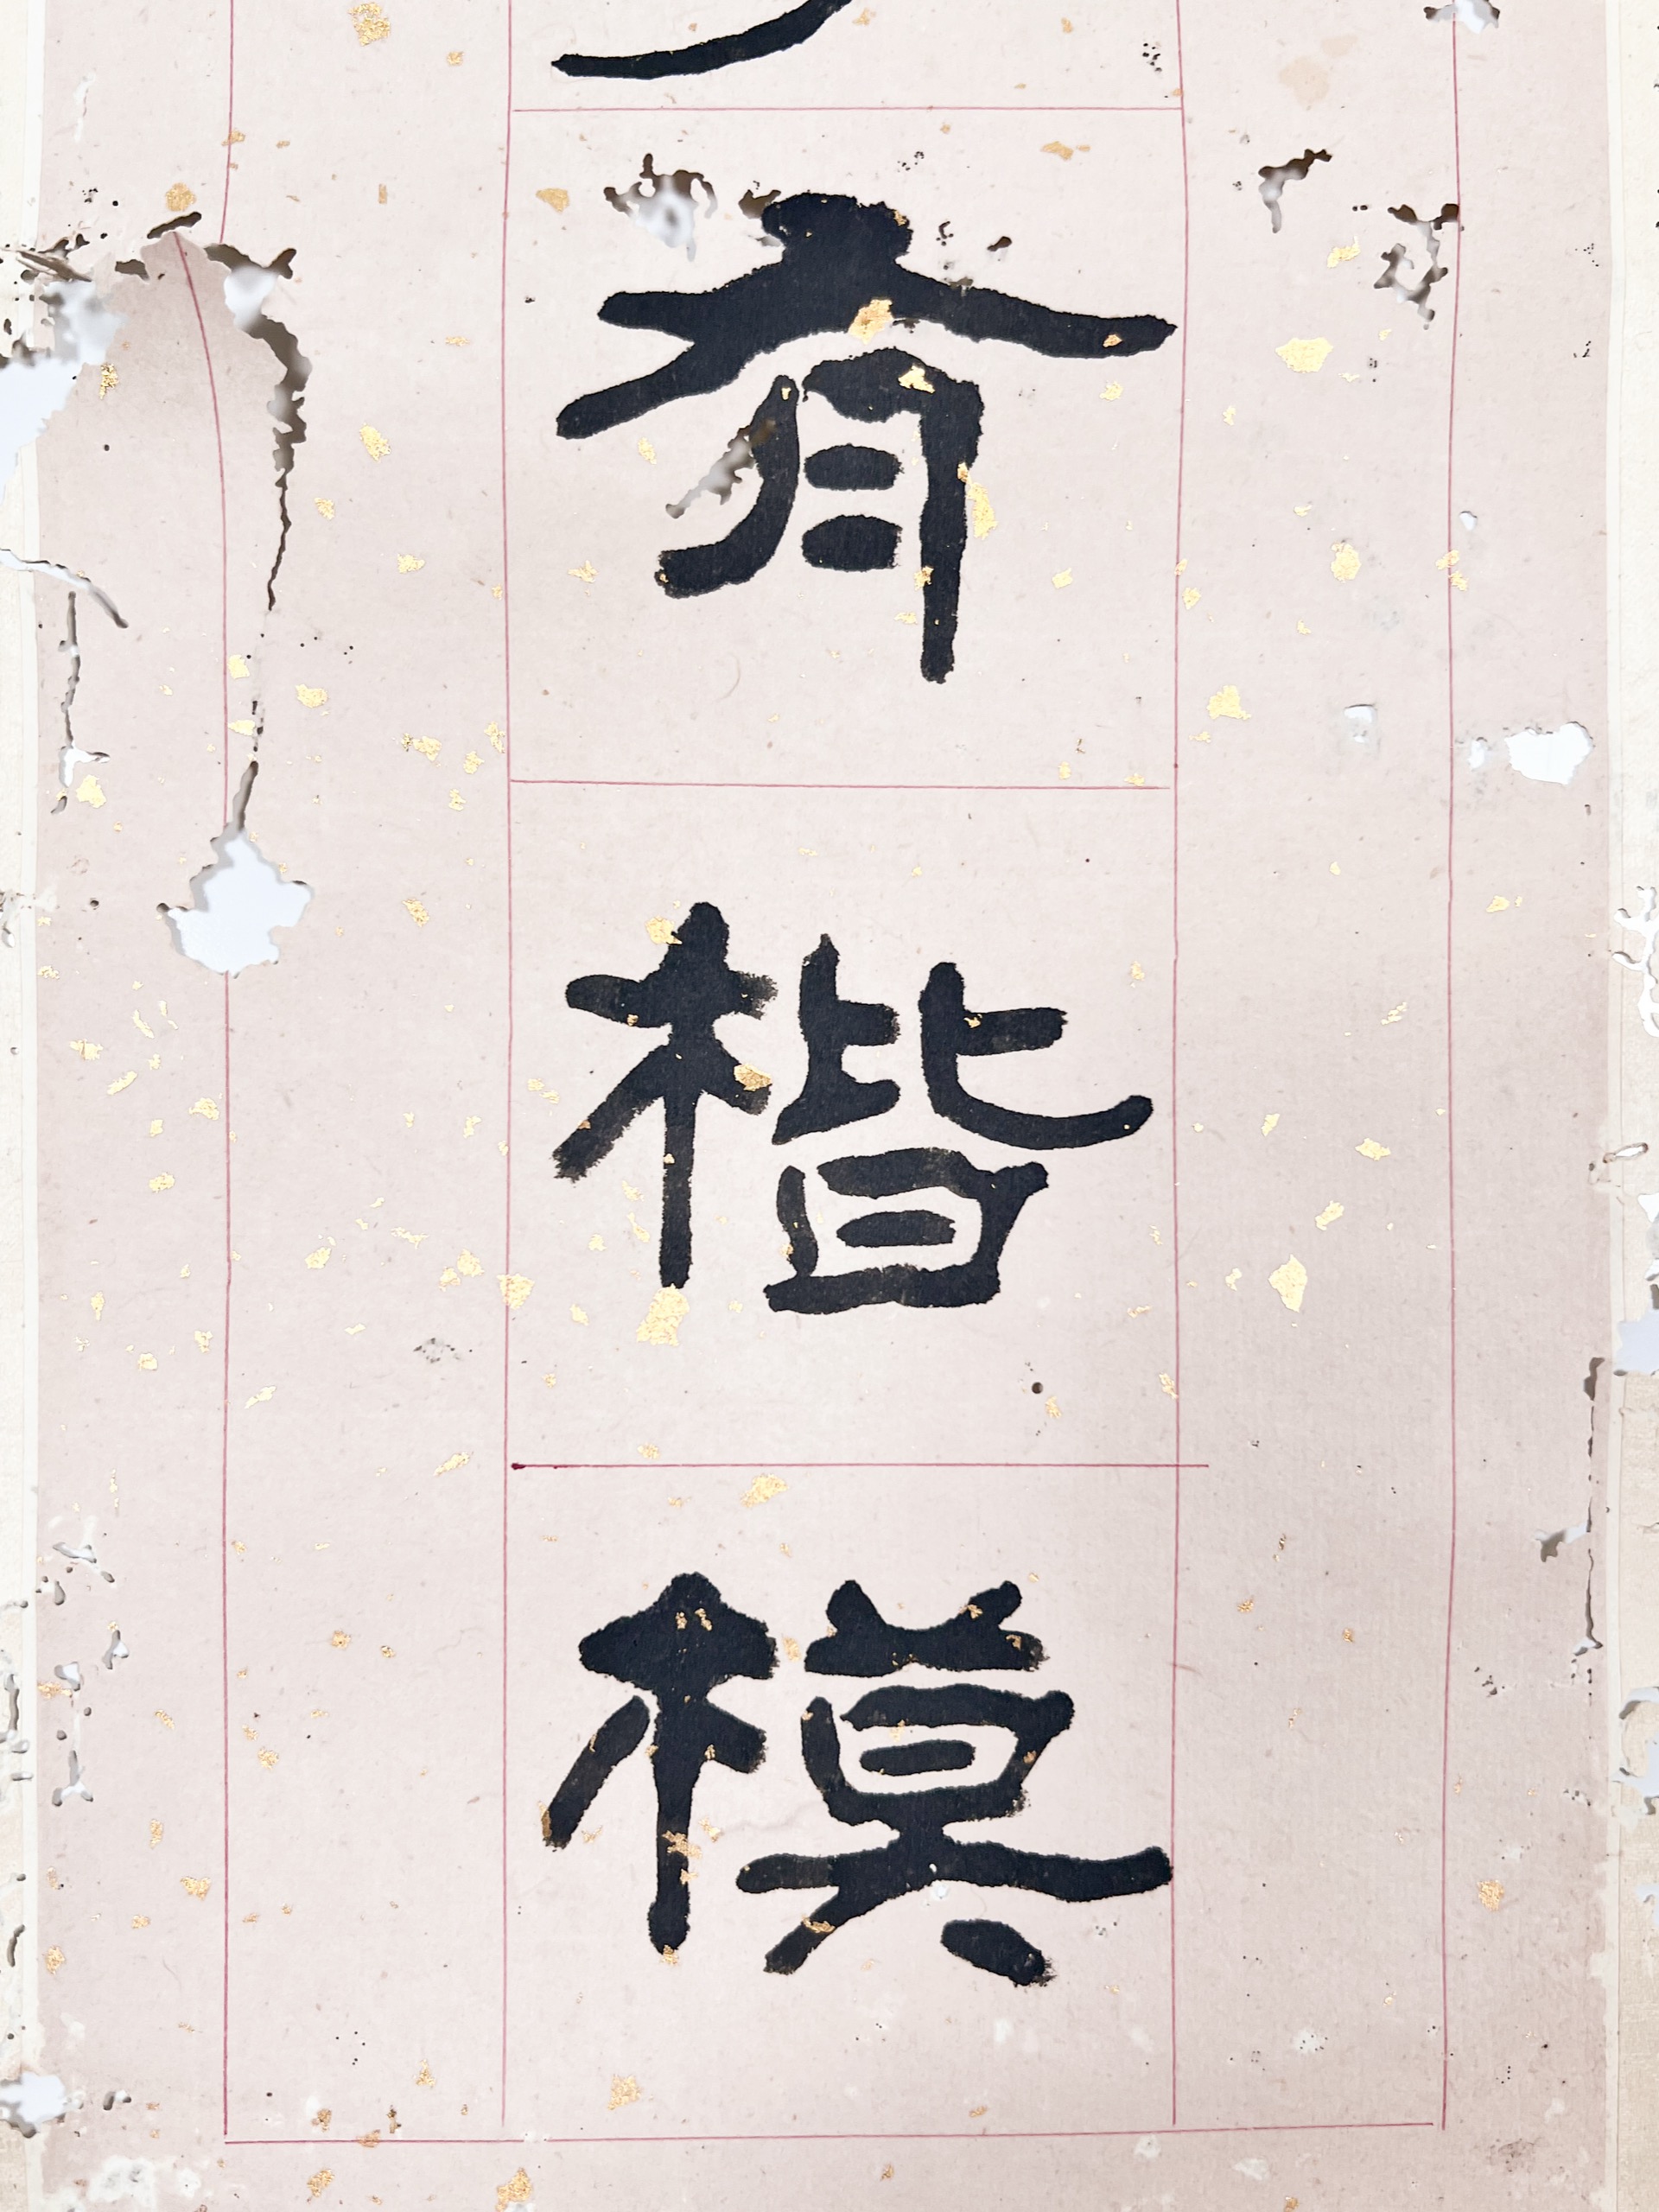 有楷模